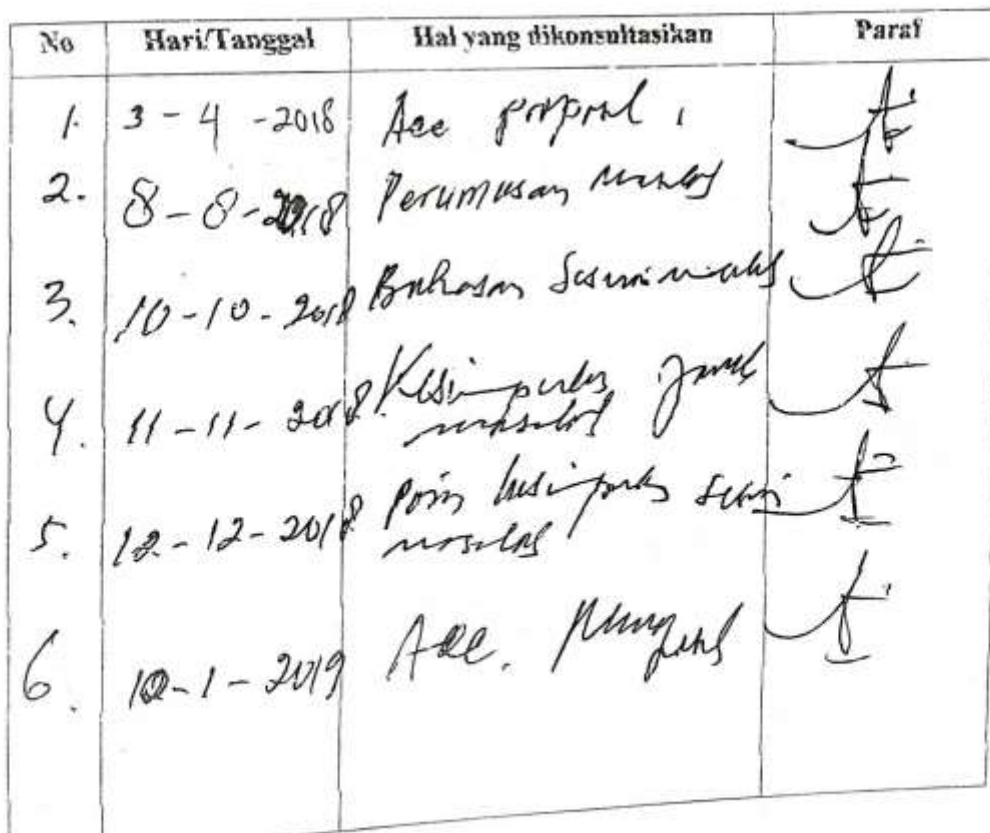 No Hari/Tanggal Hal yang dikonsultasikan Paraf
1. 3 - 4 - 2018 Acc proposal
2. 8 - 8 - 2018 Perumusan masalah
3. 10 - 10 - 2018 Bahasan sesuai masalah
4. 11 - 11 - 2018 Kesimpulan jawab
masalah
5. 12 - 12 - 2018 Poin kesimpulan sesuai
masalah
6. 10 - 1 - 2019 Acc.